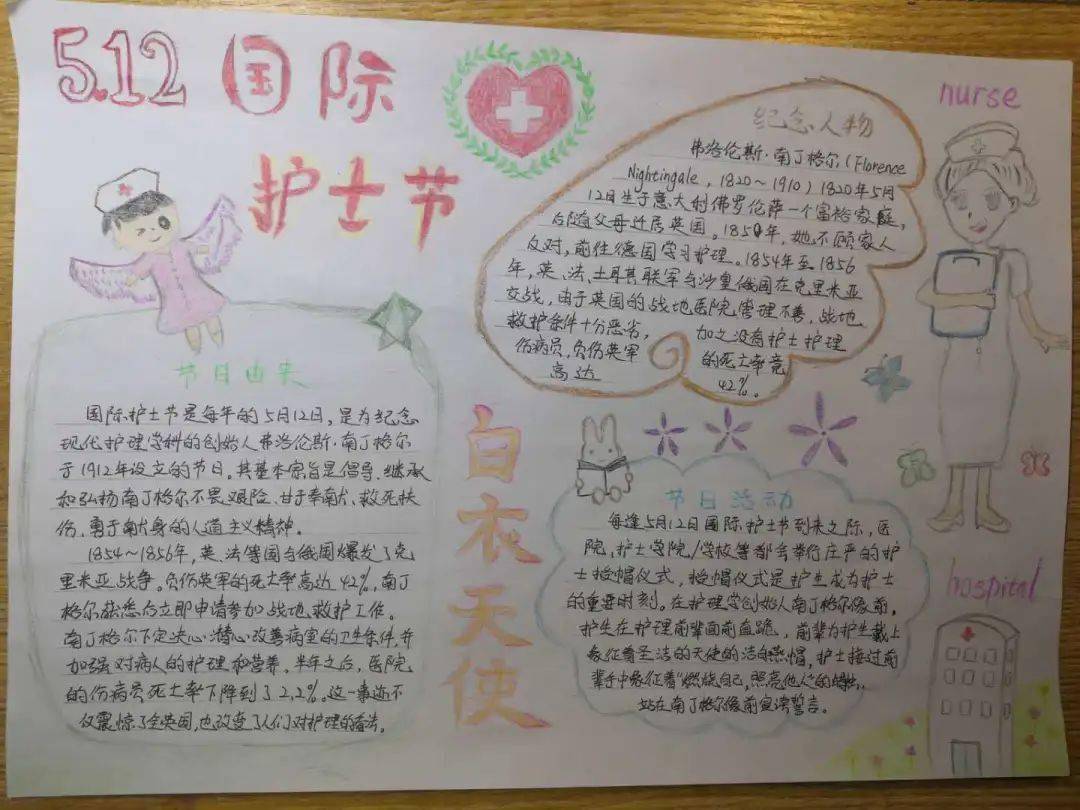 5.12 国际
护士节
节日由来
国际护士节是每年的5月12日，是为纪念
现代护理学科的创始人弗洛伦斯·南丁格尔
于1912年设立的节日。其基本宗旨是倡导、继承
和弘扬南丁格尔不畏艰险、甘于奉献、救死扶
伤、勇于献身的人道主义精神。
1854～1856年，英、法等国与俄国爆发了克
里米亚战争。负伤英军的死亡率高达42%，南丁
格尔获悉后立即申请参加战地救护工作。
南丁格尔下定决心潜心改善病室的卫生条件，并
加强对病人的护理和营养。半年之后，医院
的伤病员死亡率下降到了2.2%。这一事迹不
仅震惊了全英国，也改变了人们对护理的看法。
白衣天使
纪念人物
弗洛伦斯·南丁格尔（Florence
Nightingale，1820～1910）1820年5月
12日生于意大利佛罗伦萨一个富裕家庭，
后随父母迁居英国。1850年，她不顾家人
反对，前往德国学习护理。1854年至1856
年，英、法、土耳其联军与沙皇俄国在克里米亚
交战，由于英国的战地医院管理不善，战地
救护条件十分恶劣，加之没有护士护理
伤病员，负伤英军的死亡率竟
高达42%。
节日活动
每逢5月12日国际护士节到来之际，医
院，护士学院/学校等都会举行庄严的护
士授帽仪式，授帽仪式是护生成为护士
的重要时刻。在护理学创始人南丁格尔像前，
护生在护理前辈面前直跪，前辈为护生戴上
象征着圣洁的天使的洁白燕帽，护士接过前
辈手中象征着“燃烧自己，照亮他人”的蜡烛，
站在南丁格尔像前宣读誓言。
nurse
hospital